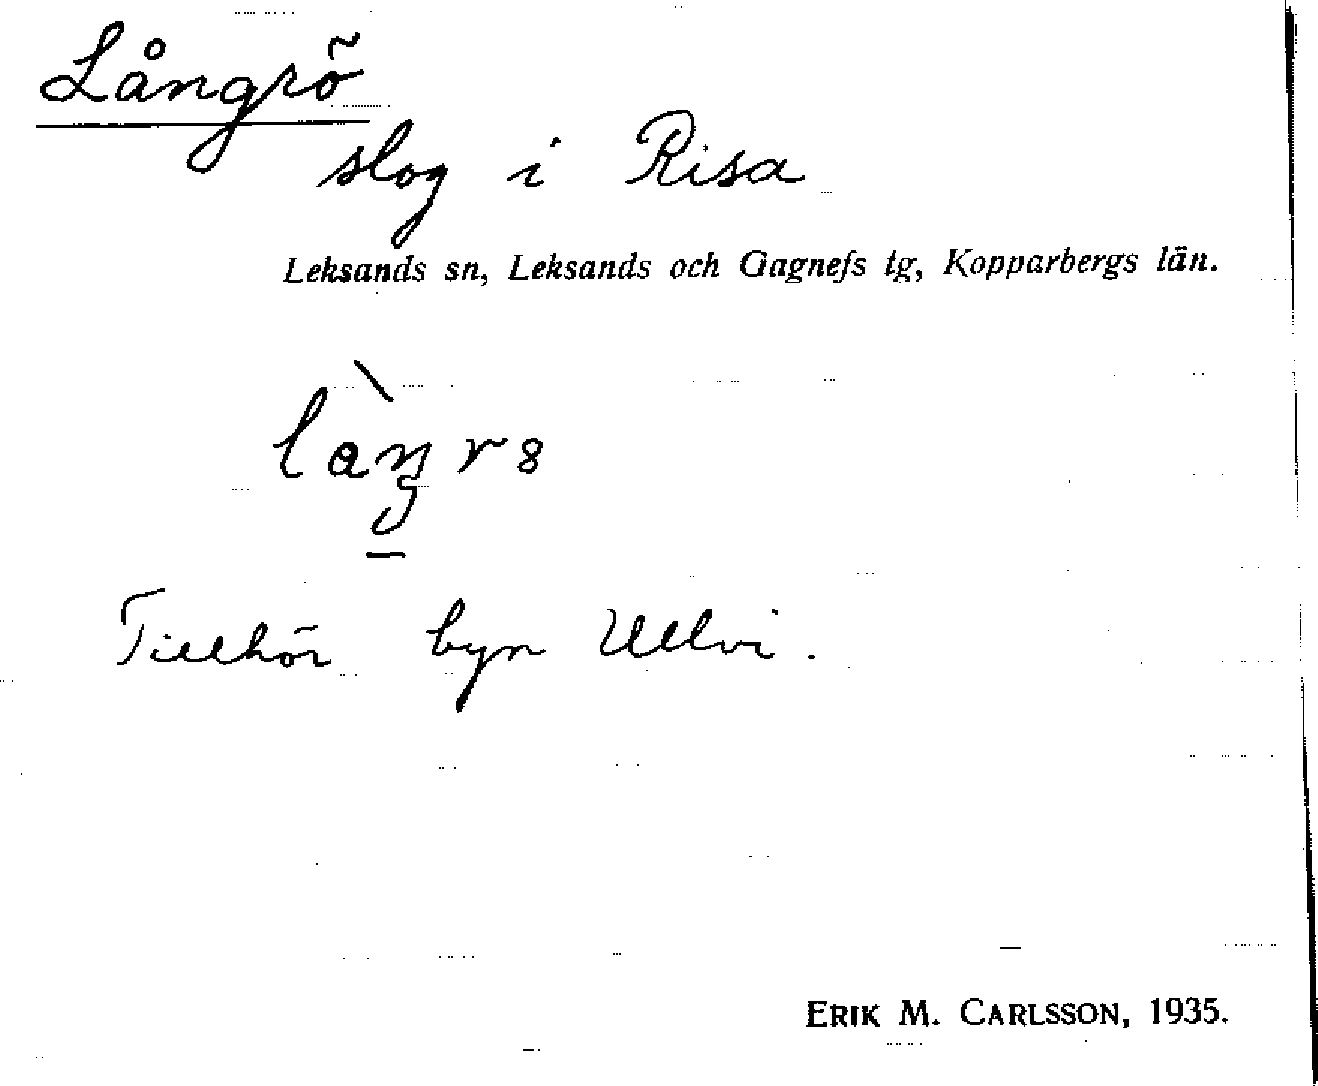 Långrö
slog i Risa
Leksands sn, Leksands och Gagnefs tg, Kopparbergs län.
Tillhör byn Ullvi.
ERIK M. CARLSSON, 1935.